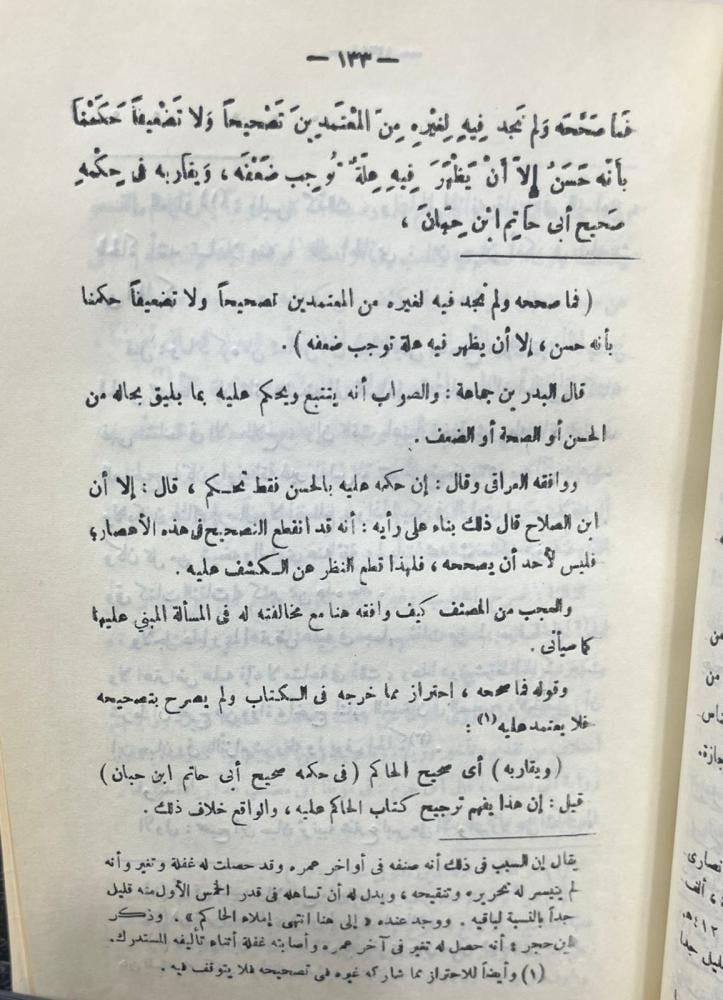 — ١٣٣ —
فَمَا صَحَّحَه وَلم نَجد فِيهِ لِغَيْرِهِ مِنَ المُعْتَمَدِينَ تَصْحِيحاً وَلا تَضْعِيفاً حَكَمْنَا
بأنّه حَسَنٌ إلاّ أنْ يَظْهَرَ فِيهِ عِلّةٌ تُوجب ضَعْفَه ، وَيقَاربه فى حِكْمِهِ
صَحيح أبى حاتِم ابن حِبّانَ ،
( فما صححه ولم نجد فيه لغيره من المعتمدين تصحيحاً ولا تضعيفاً حكمنا
بأنه حسن ، إلا أن يظهر فيه علة توجب ضعفه ) .
قال البدر بن جماعة : والصواب أنه يتتبع ويحكم عليه بما يليق بحاله من
الحسن أو الصحة أو الضعف .
ووافقه العراقى وقال : إن حكمه عليه بالحسن فقط تحكم ، قال : إلا أن
ابن الصلاح قال ذلك بناء على رأيه : أنه قد انقطع التصحيح فى هذه الأعصار ،
فليس لأحد أن يصححه ، فلهذا قطع النظر عن الكشف عليه .
والعجب من المصنف كيف وافقه هنا مع مخالفته له فى المسألة المبنى عليها
كما سيأتى .
وقوله فما صححه ، احتراز مما خرجه فى الكتاب ولم يصرح بتصحيحه
فلا يعتمد عليه (١) :
( ويقاربه ) أى صحيح الحاكم ( فى حكمه صحيح أبى حاتم ابن حبان )
قيل : إن هذا يفهم ترجيح كتاب الحاكم عليه ، والواقع خلاف ذلك .
يقال إن السبب فى ذلك أنه صنفه فى أواخر عمره وقد حصلت له غفلة وتغير وأنه
لم يتيسر له تحريره وتنقيحه ، ويدل له أن تساهله فى قدر الخمس الأول منه قليل
جداً بالنسبة لباقيه . ووجد عنده « إلى هنا انتهى إملاء الحاكم » . وذكر
ابن حجر : أنه حصل له تغير فى آخر عمره وأصابته غفلة أثناء تأليفه المستدرك.
(١) وأيضاً للاحتراز مما شاركه غيره فى تصحيحه فلا يتوقف فيه .
من
من
جازة.
تصارى
، ألف
٤١٢هـ
قليل جدا